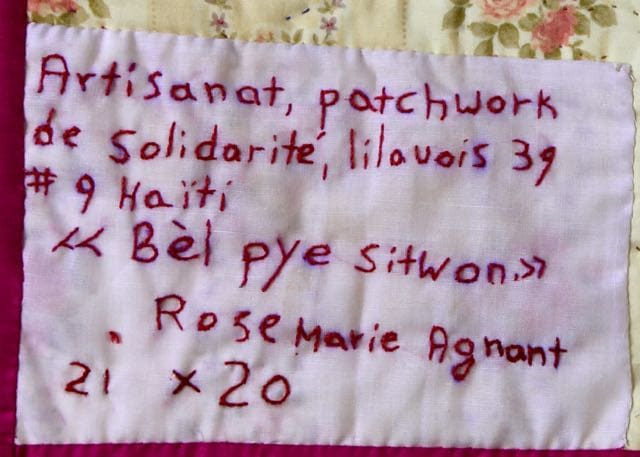 Artisanat, patchwork
de Solidarité, lilavois 39
# 9 Haïti
<< Bèl pye sitwon.>>
Rose Marie Agnant
21 x 20